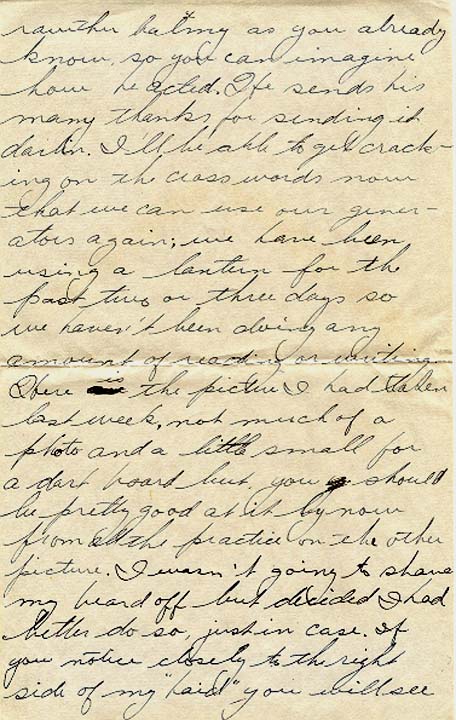 rawther batmy as you already
know, so you can imagine
how he acted. He sends his
many thanks for sending it
darlin. I'll be able to get crack-
ing on the crosswords now
that we can use our gener-
ators again; we have been
using a lantern for the
past two or three days so
we haven't been doing any
amount of reading or writing.
Here is the picture I had taken
last week, not much of a
photo and a little small for
a dart board but, you should
be pretty good at it by now
from all the practice on the other
picture. I wasn't going to shave
my beard off but decided I had
better do so, just in case. If
you notice closely to the right
side of my "haid" you will see